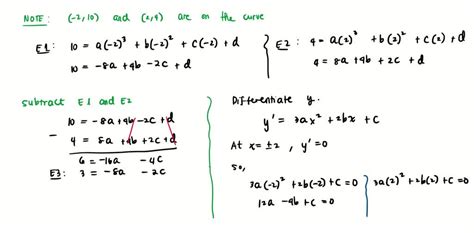 NOTE: (-2,10) and (2,4) are on the curve
E1: 10 = a(-2)³ + b(-2)² + c(-2) + d
10 = -8a + 4b - 2c + d
E2: 4 = a(2)³ + b(2)² + c(2) + d
4 = 8a + 4b + 2c + d
Subtract E1 and E2
10 = -8a + 4b - 2c + d
- 4 = 8a + 4b + 2c + d
6 = -16a - 4c
E3: 3 = -8a - 2c
Differentiate y.
y' = 3ax² + 2bx + c
At x = ±2, y' = 0
So,
3a(-2)² + 2b(-2) + c = 0
12a - 4b + c = 0
3a(2)² + 2b(2) + c = 0